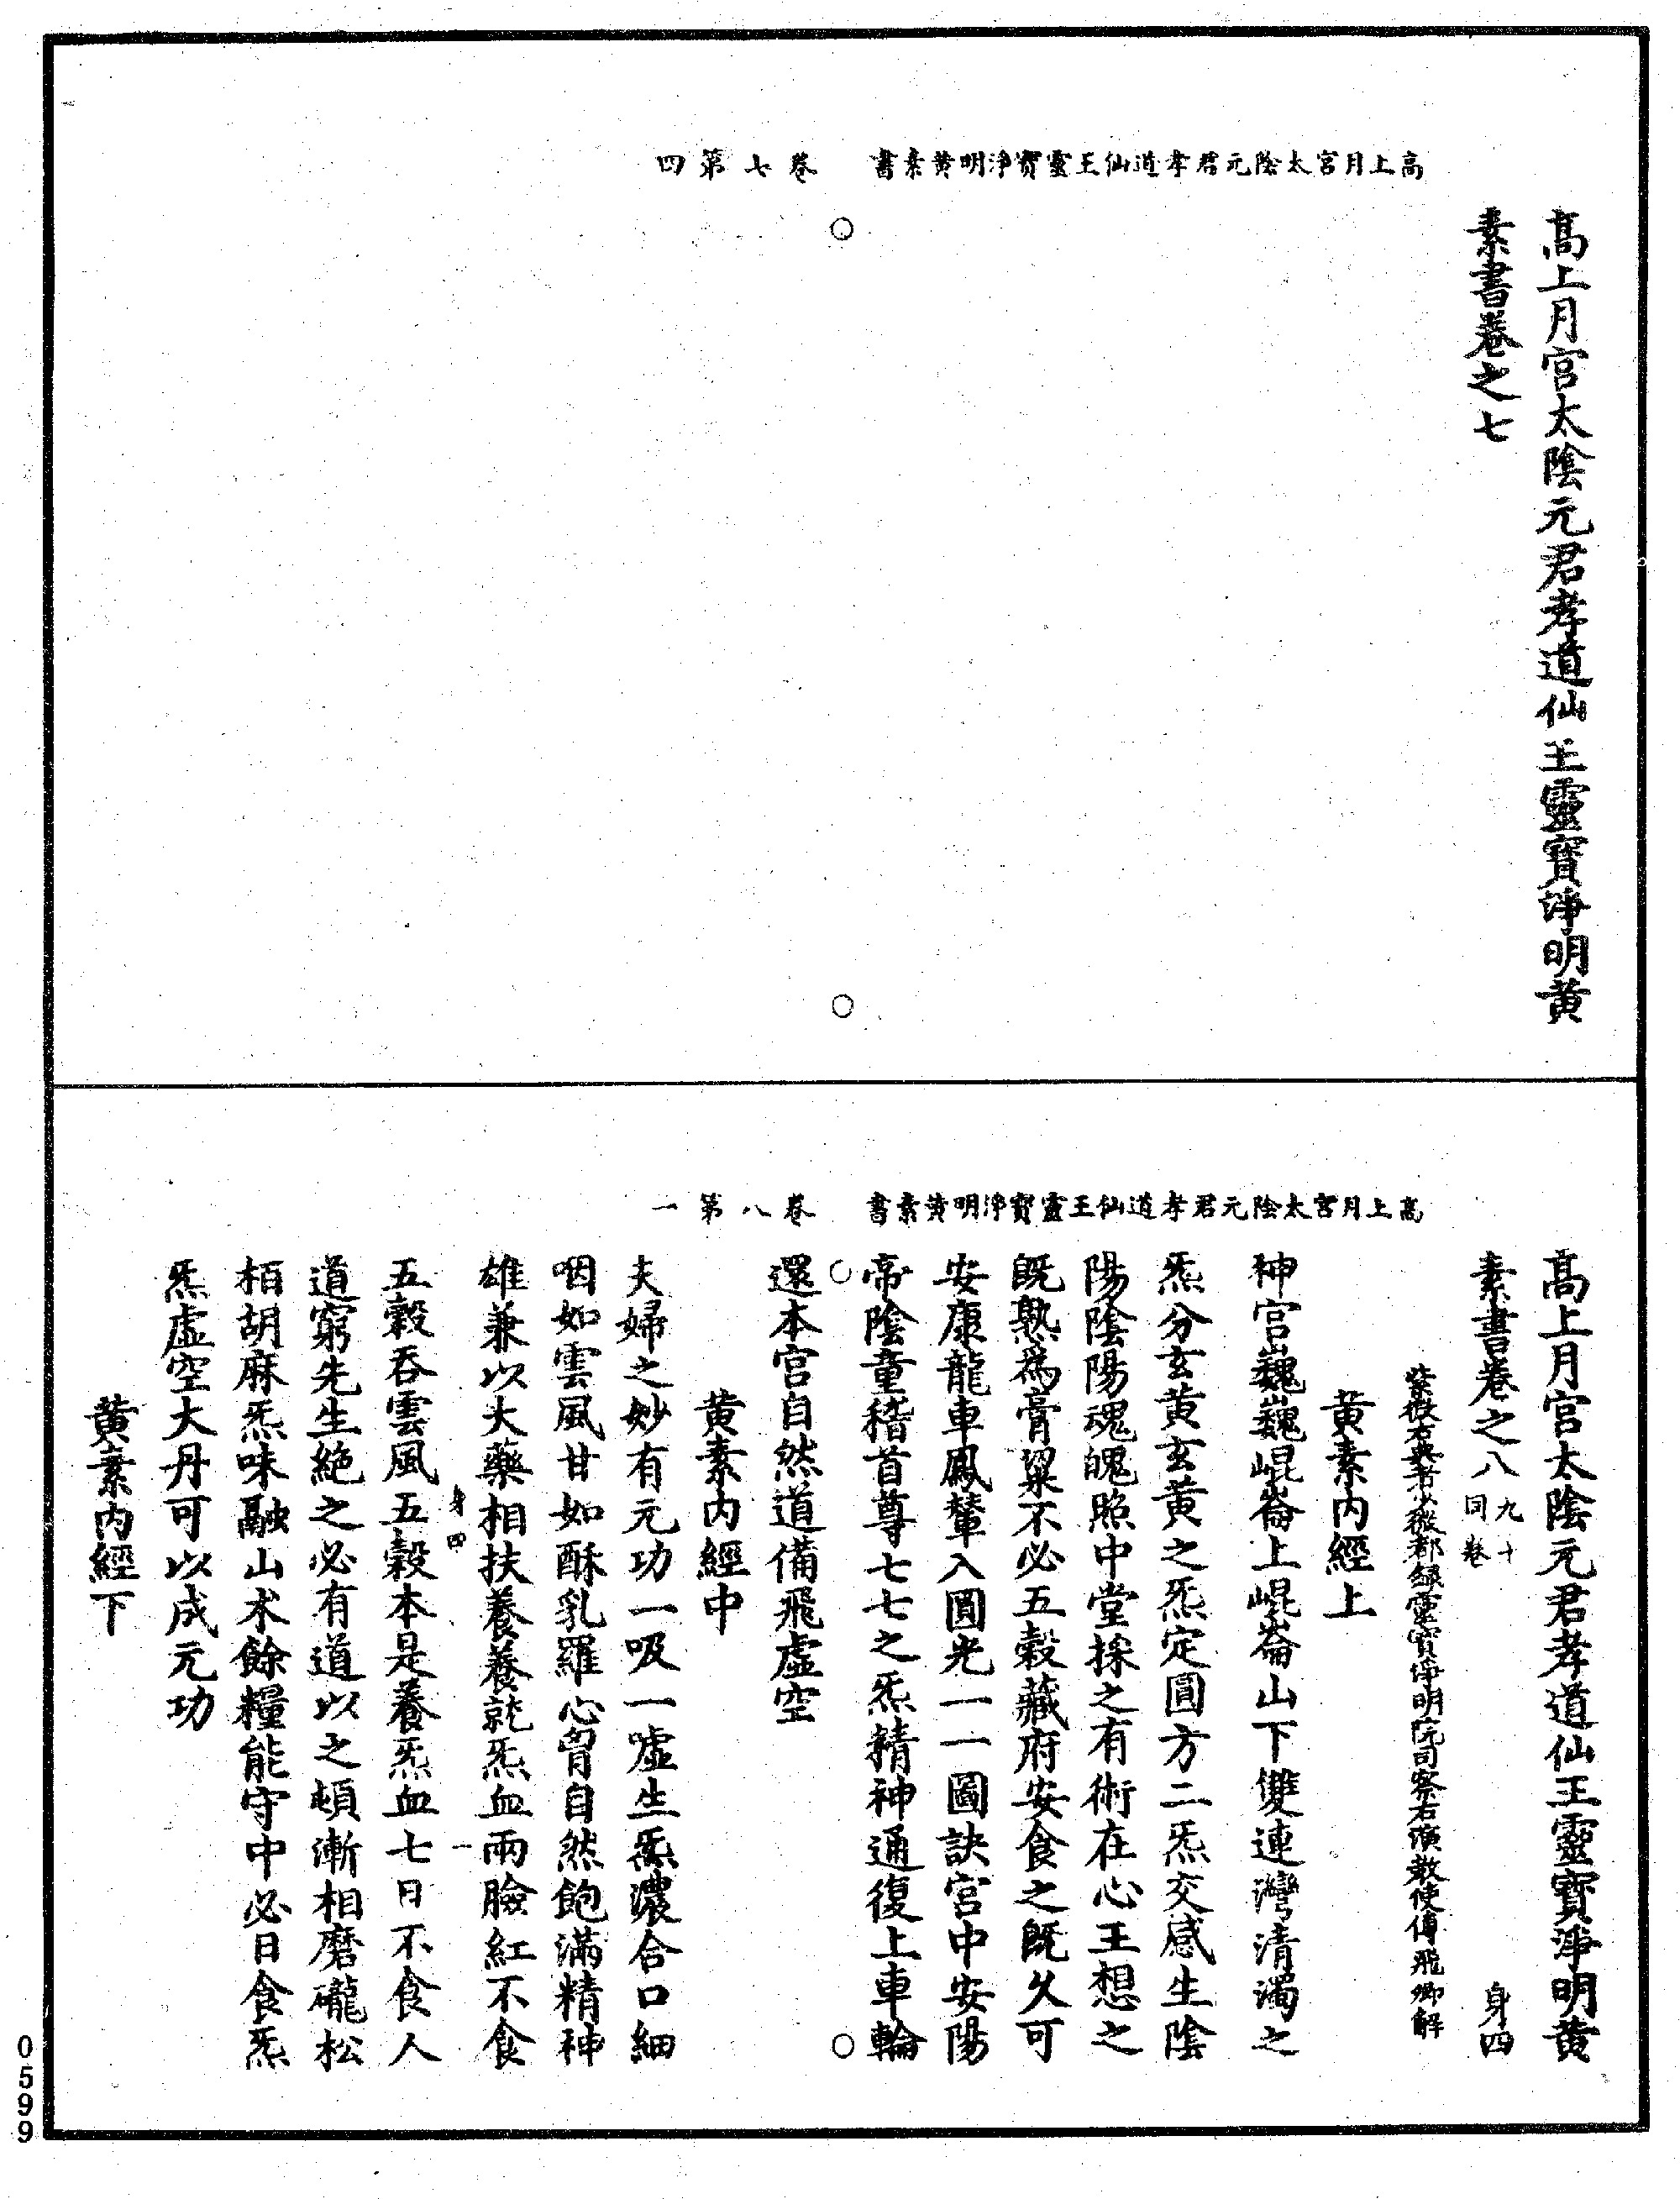 高上月宮太陰元君孝道仙王靈寶淨明黃素書　卷七第四
高上月宮太陰元君孝道仙王靈寶淨明黃
素書卷之七
高上月宮太陰元君孝道仙王靈寶淨明黃素書　卷八第一
高上月宮太陰元君孝道仙王靈寶淨明黃
素書卷之八 九十同卷　身四
紫微右典者少微都録靈寶淨明院司察右演教使傅飛卿解
黃素内經上
神宮巍巍崐崙上崐崙山下雙連灣清濁之
炁分玄黃玄黃之炁定圓方二炁交感生陰
陽陰陽魂魄照中堂採之有術在心王想之
既熟為膏粱不必五穀藏府安食之既久可
安康龍車鳳輦入圓光一一圖訣宮中安陽
帝陰童稽首尊七七之炁精神通復上車輪
還本宮自然道備飛虛空
黃素内經中
夫婦之妙有元功一吸一噓生炁濃合口細
咽如雲風甘如酥乳羅心胷自然飽滿精神
雄兼以大藥相扶養養就炁血兩臉紅不食
身四　一
五穀吞雲風五穀本是養炁血七日不食人
道窮先生絶之必有道以之頓漸相磨礲松
栢胡麻炁味融山术餘糧能守中必日食炁
炁虛空大丹可以成元功
黃素内經下
0599